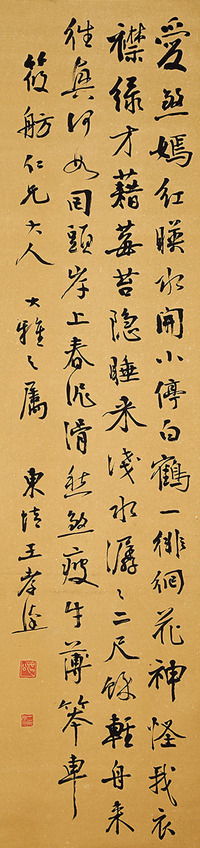 愛煞嫣紅暎水開小停白鶴一徘徊花神怪我衣
襟綠才藉莓苔隐睡来淺水潺〻二尺餘輕舟来
往興何如回頭岸上春泥滑愁煞疲牛薄笨車
筱舫仁兄大人 大雅之屬 東 王孝